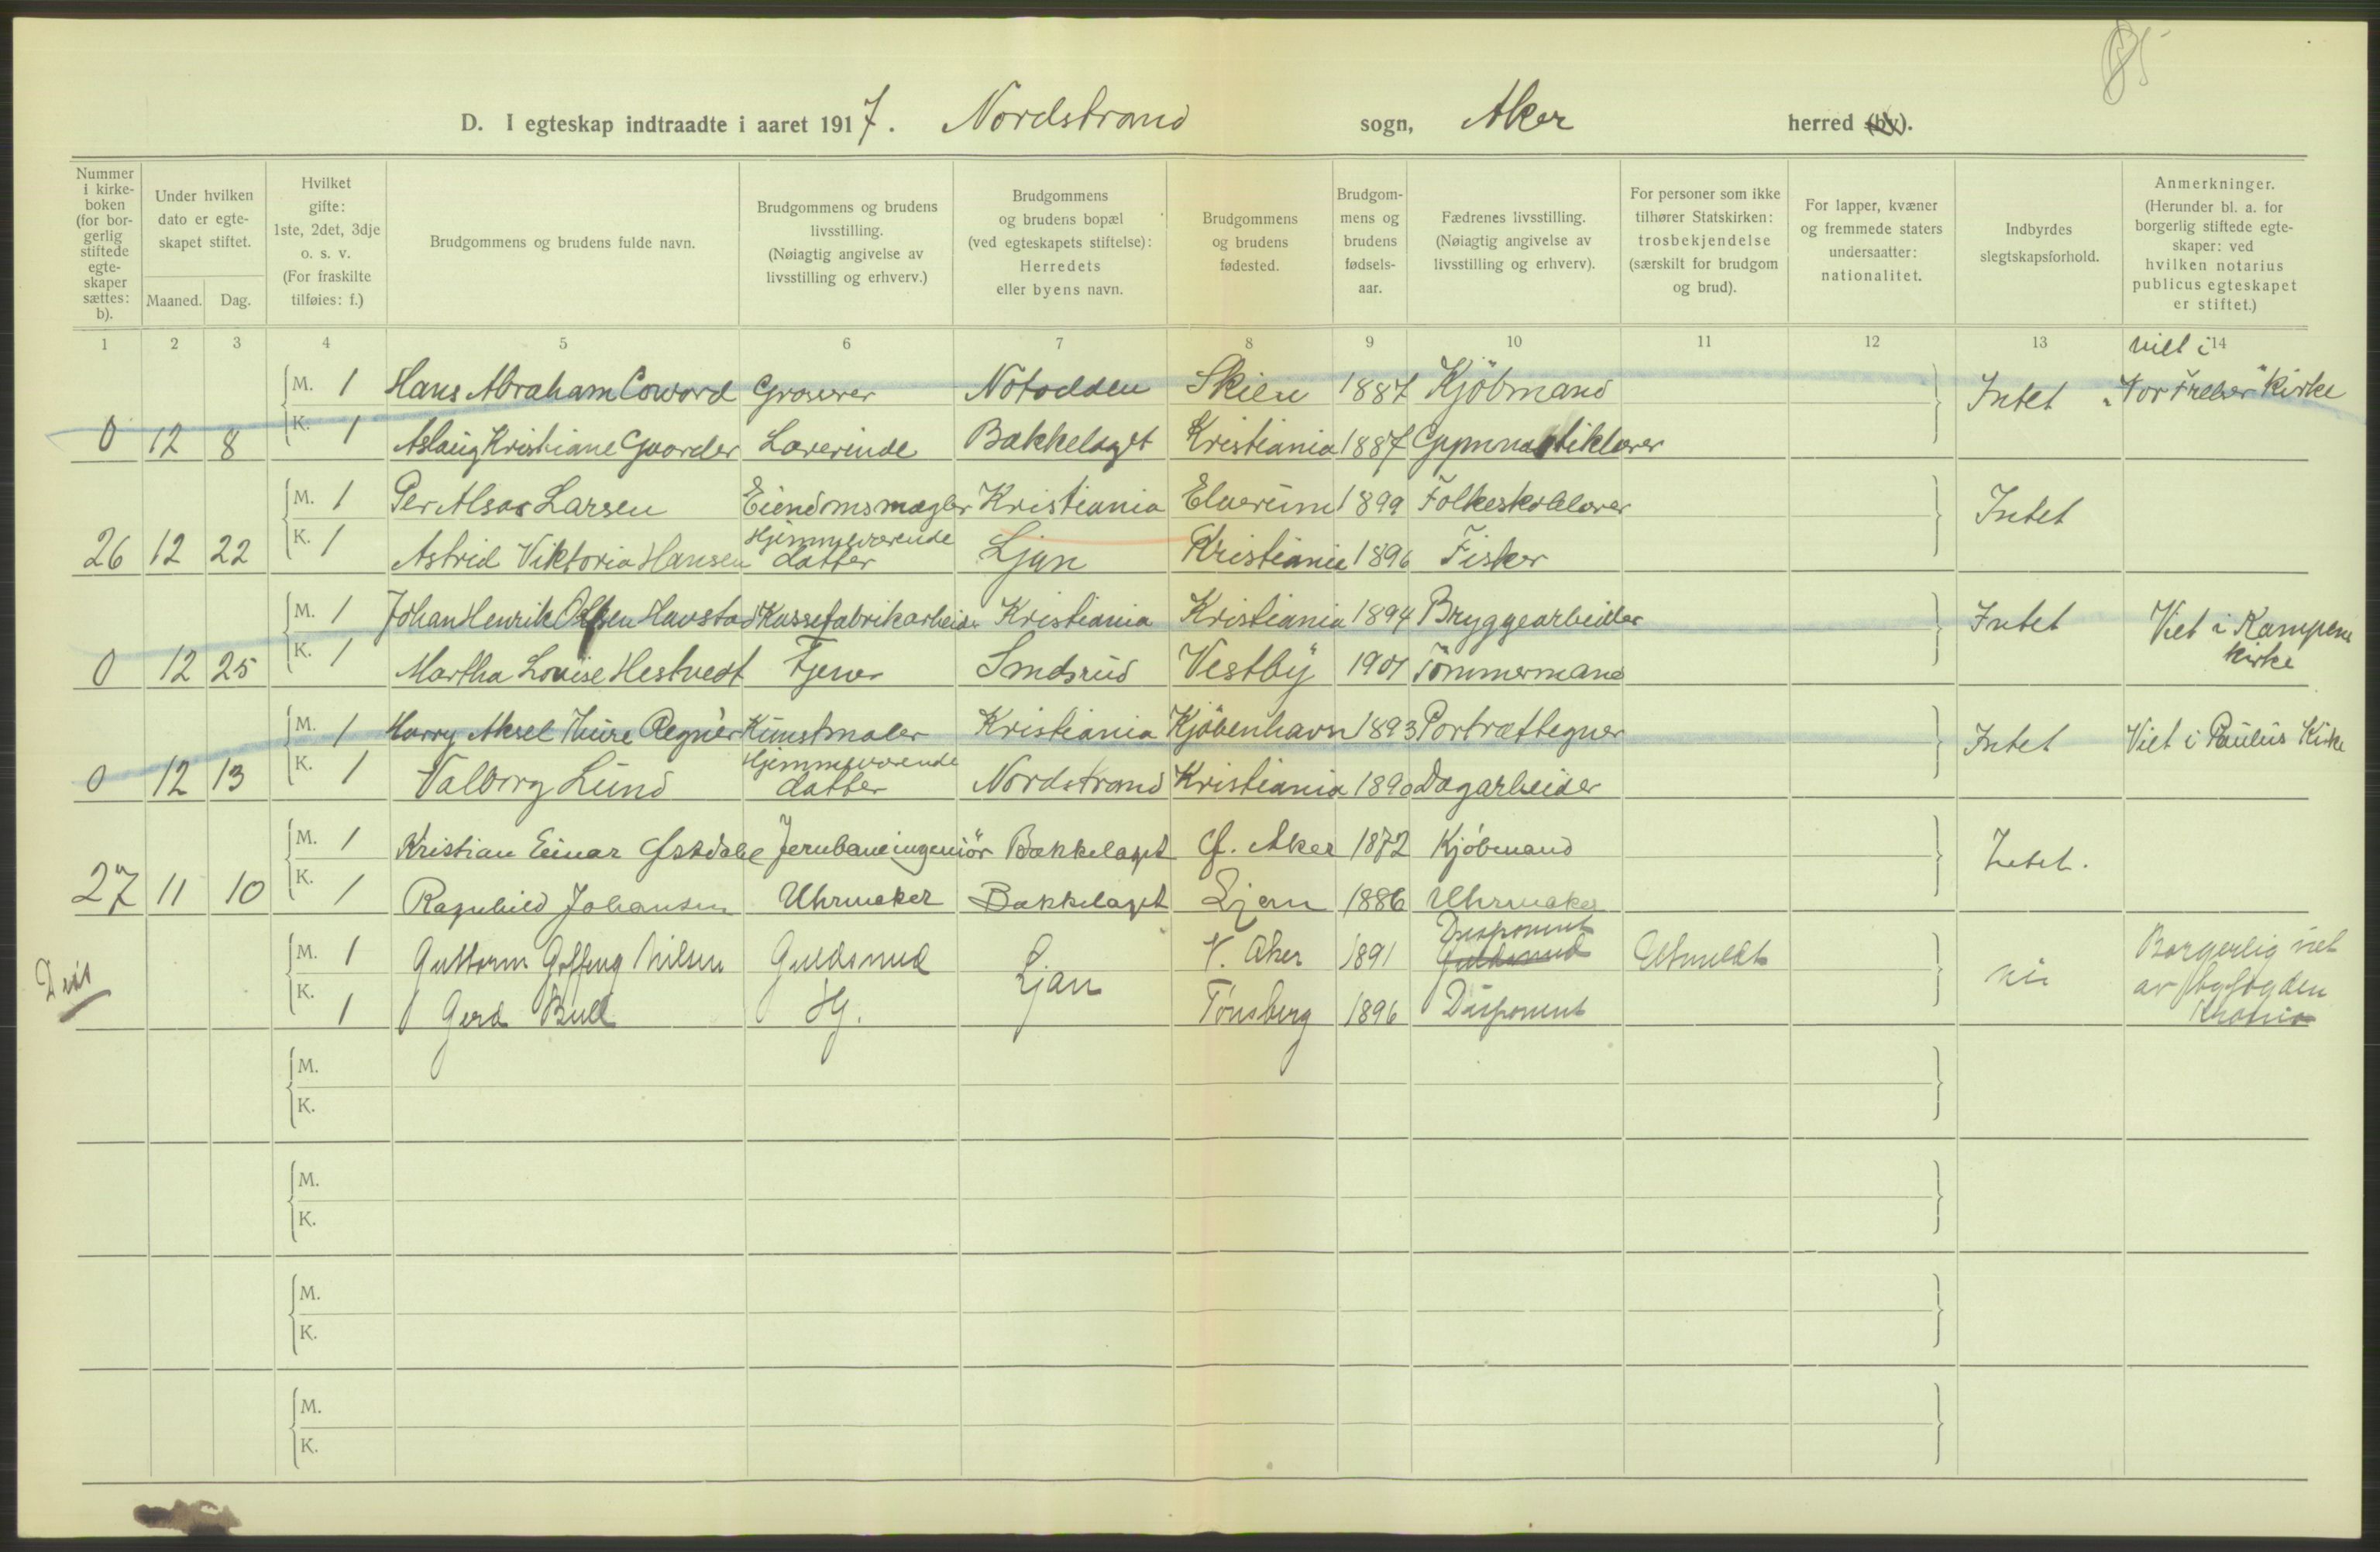 85
D. I egteskap indtraadte i aaret 1917. Nordstrand sogn, Aker herred (by).
Nummer i kirkeboken (for borgerlig stiftede egteskaper sættes: b).
Under hvilken dato er egteskapet stiftet.
Maaned. Dag.
Hvilket gifte: 1ste, 2det, 3dje o. s. v. (For fraskilte tilføies: f.)
Brudgommens og brudens fulde navn.
Brudgommens og brudens livsstilling. (Nøiagtig angivelse av livsstilling og erhverv.)
Brudgommens og brudens bopæl (ved egteskapets stiftelse): Herredets eller byens navn.
Brudgommens og brudens fødested.
Brudgommens og brudens fødselsaar.
Fædrenes livsstilling. (Nøiagtig angivelse av livsstilling og erhverv).
For personer som ikke tilhører Statskirken: trosbekjendelse (særskilt for brudgom og brud).
For lapper, kvæner og fremmede staters undersaatter: nationalitet.
Indbyrdes slegtskapsforhold.
Anmerkninger. (Herunder bl. a. for borgerlig stiftede egteskaper: ved hvilken notarius publicus egteskapet er stiftet.)
1 2 3 4 5 6 7 8 9 10 11 12 13 14
M. 1 Hans Abraham Coward Grosserer Notodden Skien 1887 Kjöbmand Intet viet i "Vor Frelser" Kirke
0 12 8 K. 1 Aslaug Kristiane Gaarder Lærerinde Bækkelaget Kristiania 1887 Gymnastiklærer
M. 1 Per Alsos Larsen Eiendmsmægler Kristiania Elverum 1899 Folkeskolelærer Intet
26 12 22 K. 1 Astrid Viktoria Hansen Hjemmeværende datter Ljan Kristiania 1896 Fisker
M. 1 Johan Henrik Olsen Havstad Kassefabrikarbeider Kristiania Kristiania 1894 Bryggearbeider Intet Viet i Kampens kirke
0 12 25 K. 1 Martha Louise Hestvedt Tjener Smdsrud Vestby 1901 Tömmermand
M. 1 Harry Aksel Thure Regnèr Kunstmaler Kristiania Kjöbenhavn 1893 Portrættegner Intet Viet i Paulus Kirke
0 12 13 K. 1 Valborg Lund Hjemmeværende datter Nordstrand Kristiania 1890 Dagarbeider
M. 1 Kristian Einar Østdahl Jernbaneingeniör Bækkelaget Ø. Aker 1872 Kjöbmand Intet.
27 11 10 K. 1 Ragnhild Johansen Uhrmaker Bækkelaget Ljan 1886 Uhrmaker
M. 1 Guttorm Nilsen Guldsmed Ljan V. Aker 1891 Disponent Guldsmed Utmeldt nei Borgerlig viet av byfogden
K. 1 Gerd Bull Hj. Tönsberg 1896 Disponent
M.
K.
M.
K.
M.
K.
M.
K.